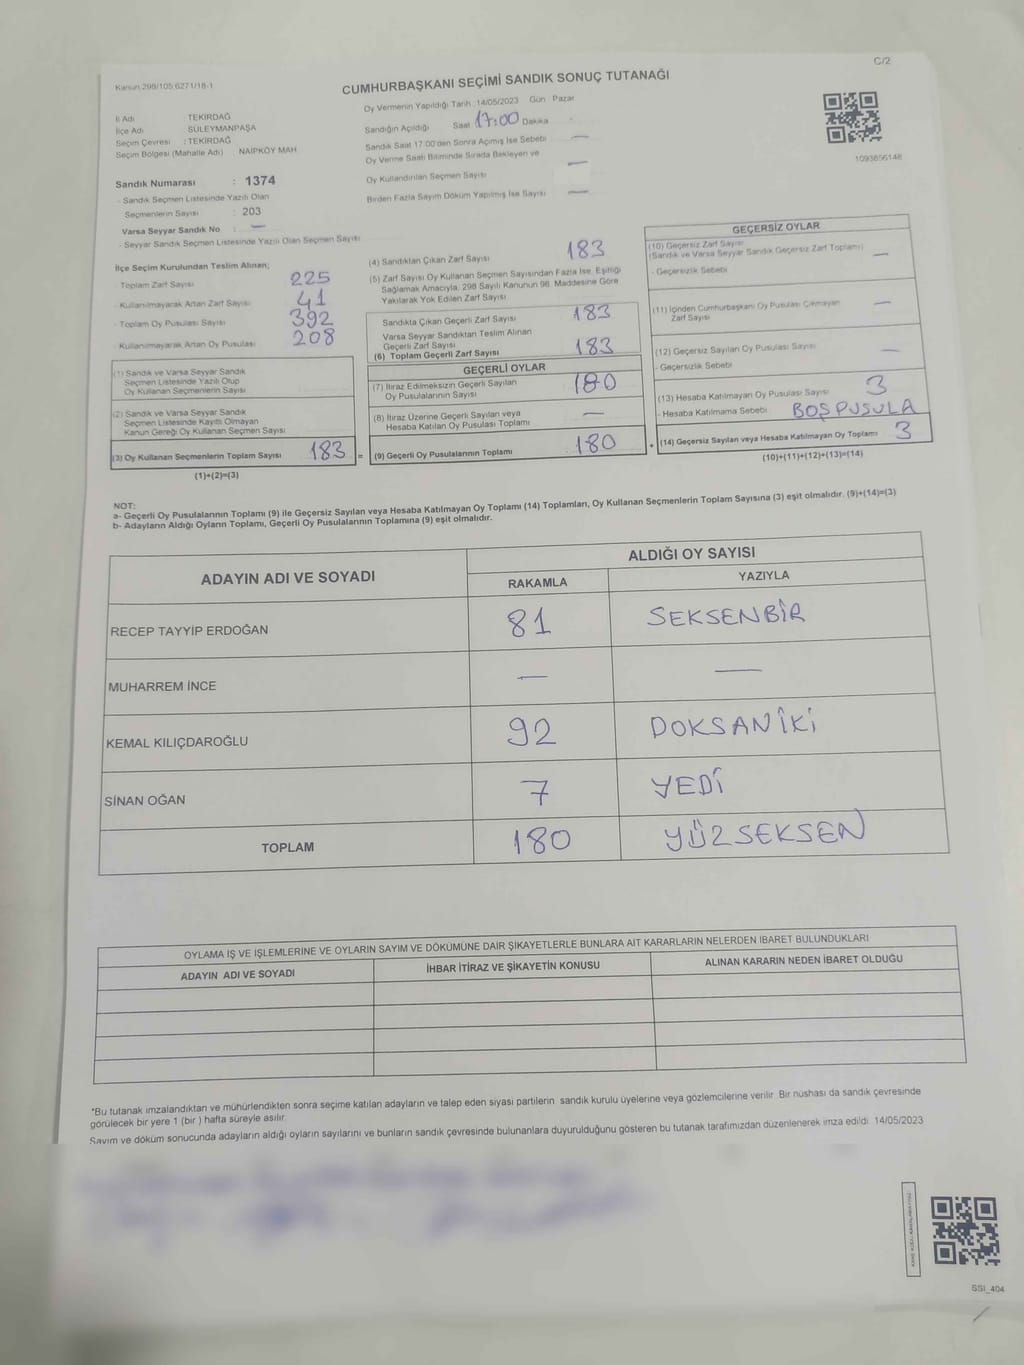 C/2
Kanun 298/105 6271/18-1
CUMHURBAŞKANI SEÇİMİ SANDIK SONUÇ TUTANAĞI
İl Adı TEKİRDAĞ
İlçe Adı SÜLEYMANPAŞA
Seçim Çevresi : TEKİRDAĞ
Seçim Bölgesi (Mahalle Adı) NAİPKÖY MAH.
Sandık Numarası : 1374
- Sandık Seçmen Listesinde Yazılı Olan
Seçmenlerin Sayısı : 203
Varsa Seyyar Sandık No : —
- Seyyar Sandık Seçmen Listesinde Yazılı Olan Seçmen Sayısı
Oy Vermenin Yapıldığı Tarih : 14/05/2023 Gün : Pazar
Sandığın Açıldığı Saat 17:00 Dakika
Sandık Saat 17.00'den Sonra Açımış İse Sebebi —
Oy Verme Saati Bitiminde Sırada Bekleyen ve
Oy Kullandırılan Seçmen Sayısı —
Birden Fazla Sayım Döküm Yapılmış İse Sayısı —
1093856148
İlçe Seçim Kurulundan Teslim Alınan;
- Toplam Zarf Sayısı 225
- Kullanılmayarak Artan Zarf Sayısı 41
- Toplam Oy Pusulası Sayısı 392
- Kullanılmayarak Artan Oy Pusulası 208
(1) Sandık ve Varsa Seyyar Sandık
Seçmen Listesinde Yazılı Olup
Oy Kullanan Seçmenlerin Sayısı
(2) Sandık ve Varsa Seyyar Sandık
Seçmen Listesinde Kayıtlı Olmayan
Kanun Gereği Oy Kullanan Seçmen Sayısı
(3) Oy Kullanan Seçmenlerin Toplam Sayısı 183 =
(1)+(2)=(3)
(4) Sandıktan Çıkan Zarf Sayısı 183
(5) Zarf Sayısı Oy Kullanan Seçmen Sayısından Fazla İse, Eşitliği
Sağlamak Amacıyla, 298 Sayılı Kanunun 98. Maddesine Göre
Yakılarak Yok Edilen Zarf Sayısı
Sandıkta Çıkan Geçerli Zarf Sayısı 183
Varsa Seyyar Sandıktan Teslim Alınan
Geçerli Zarf Sayısı
(6) Toplam Geçerli Zarf Sayısı 183
GEÇERLİ OYLAR
(7) İtiraz Edilmeksizin Geçerli Sayılan
Oy Pusulalarının Sayısı 180
(8) İtiraz Üzerine Geçerli Sayılan veya
Hesaba Katılan Oy Pusulası Toplamı —
(9) Geçerli Oy Pusulalarının Toplamı 180 +
GEÇERSİZ OYLAR
(10) Geçersiz Zarf Sayısı
(Sandık ve Varsa Seyyar Sandık Geçersiz Zarf Toplamı) —
- Geçersizlik Sebebi
(11) İçinden Cumhurbaşkanı Oy Pusulası Çıkmayan
Zarf Sayısı —
(12) Geçersiz Sayılan Oy Pusulası Sayısı —
- Geçersizlik Sebebi
(13) Hesaba Katılmayan Oy Pusulası Sayısı 3
- Hesaba Katılmama Sebebi BOŞ PUSULA
(14) Geçersiz Sayılan veya Hesaba Katılmayan Oy Toplamı 3
(10)+(11)+(12)+(13)=(14)
NOT:
a- Geçerli Oy Pusulalarının Toplamı (9) ile Geçersiz Sayılan veya Hesaba Katılmayan Oy Toplamı (14) Toplamları, Oy Kullanan Seçmenlerin Toplam Sayısına (3) eşit olmalıdır. (9)+(14)=(3)
b- Adayların Aldığı Oyların Toplamı, Geçerli Oy Pusulalarının Toplamına (9) eşit olmalıdır.
ADAYIN ADI VE SOYADI ALDIĞI OY SAYISI
RAKAMLA YAZIYLA
RECEP TAYYİP ERDOĞAN 81 SEKSENBİR
MUHARREM İNCE — —
KEMAL KILIÇDAROĞLU 92 DOKSANİKİ
SİNAN OĞAN 7 YEDİ
TOPLAM 180 YÜZSEKSEN
OYLAMA İŞ VE İŞLEMLERİNE VE OYLARIN SAYIM VE DÖKÜMÜNE DAİR ŞİKAYETLERLE BUNLARA AİT KARARLARIN NELERDEN İBARET BULUNDUKLARI
ADAYIN ADI VE SOYADI İHBAR İTİRAZ VE ŞİKAYETİN KONUSU ALINAN KARARIN NEDEN İBARET OLDUĞU
*Bu tutanak imzalandıktan ve mühürlendikten sonra seçime katılan adayların ve talep eden siyasi partilerin sandık kurulu üyelerine veya gözlemcilerine verilir. Bir nüshası da sandık çevresinde
görülecek bir yere 1 (bir) hafta süreyle asılır.
Sayım ve döküm sonucunda adayların aldığı oyların sayılarını ve bunların sandık çevresinde bulunanlara duyurulduğunu gösteren bu tutanak tarafımızdan düzenlenerek imza edildi. 14/05/2023
SSI_404